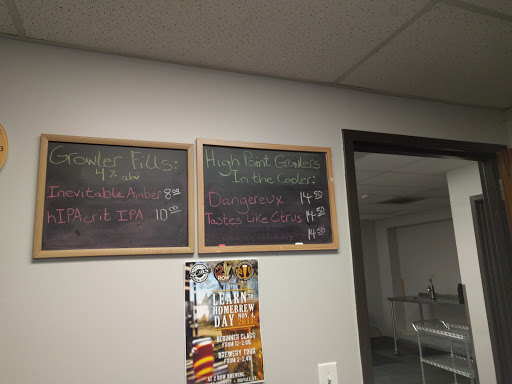 Growler Fills:
4% abv
Inevitable Amber 8.00
hIPAcrit IPA 10.00
High Point Growlers
In the Cooler:
Dangereux 14.50
Tastes Like Citrus 14.50
14.50
LEARN TO
HOMEBREW
DAY NOV. 4,
BEGINNER CLASS
FROM 12-2:00
BREWERY TOUR
FROM 2-2:45
AT 2 ROW BREWING